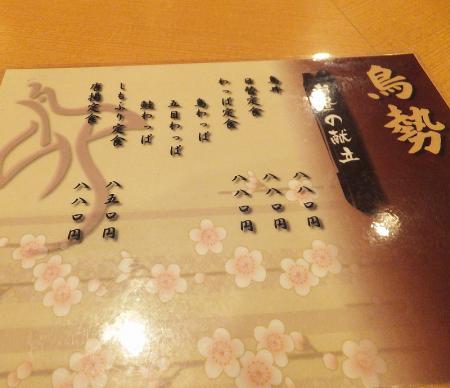 鳥勢
の献立
鳥丼 八八〇円
日替定食 八八〇円
わっぱ定食 八八〇円
鳥わっぱ
五目わっぱ
鮭わっぱ
しもふり定食 八五〇円
唐揚定食 八八〇円